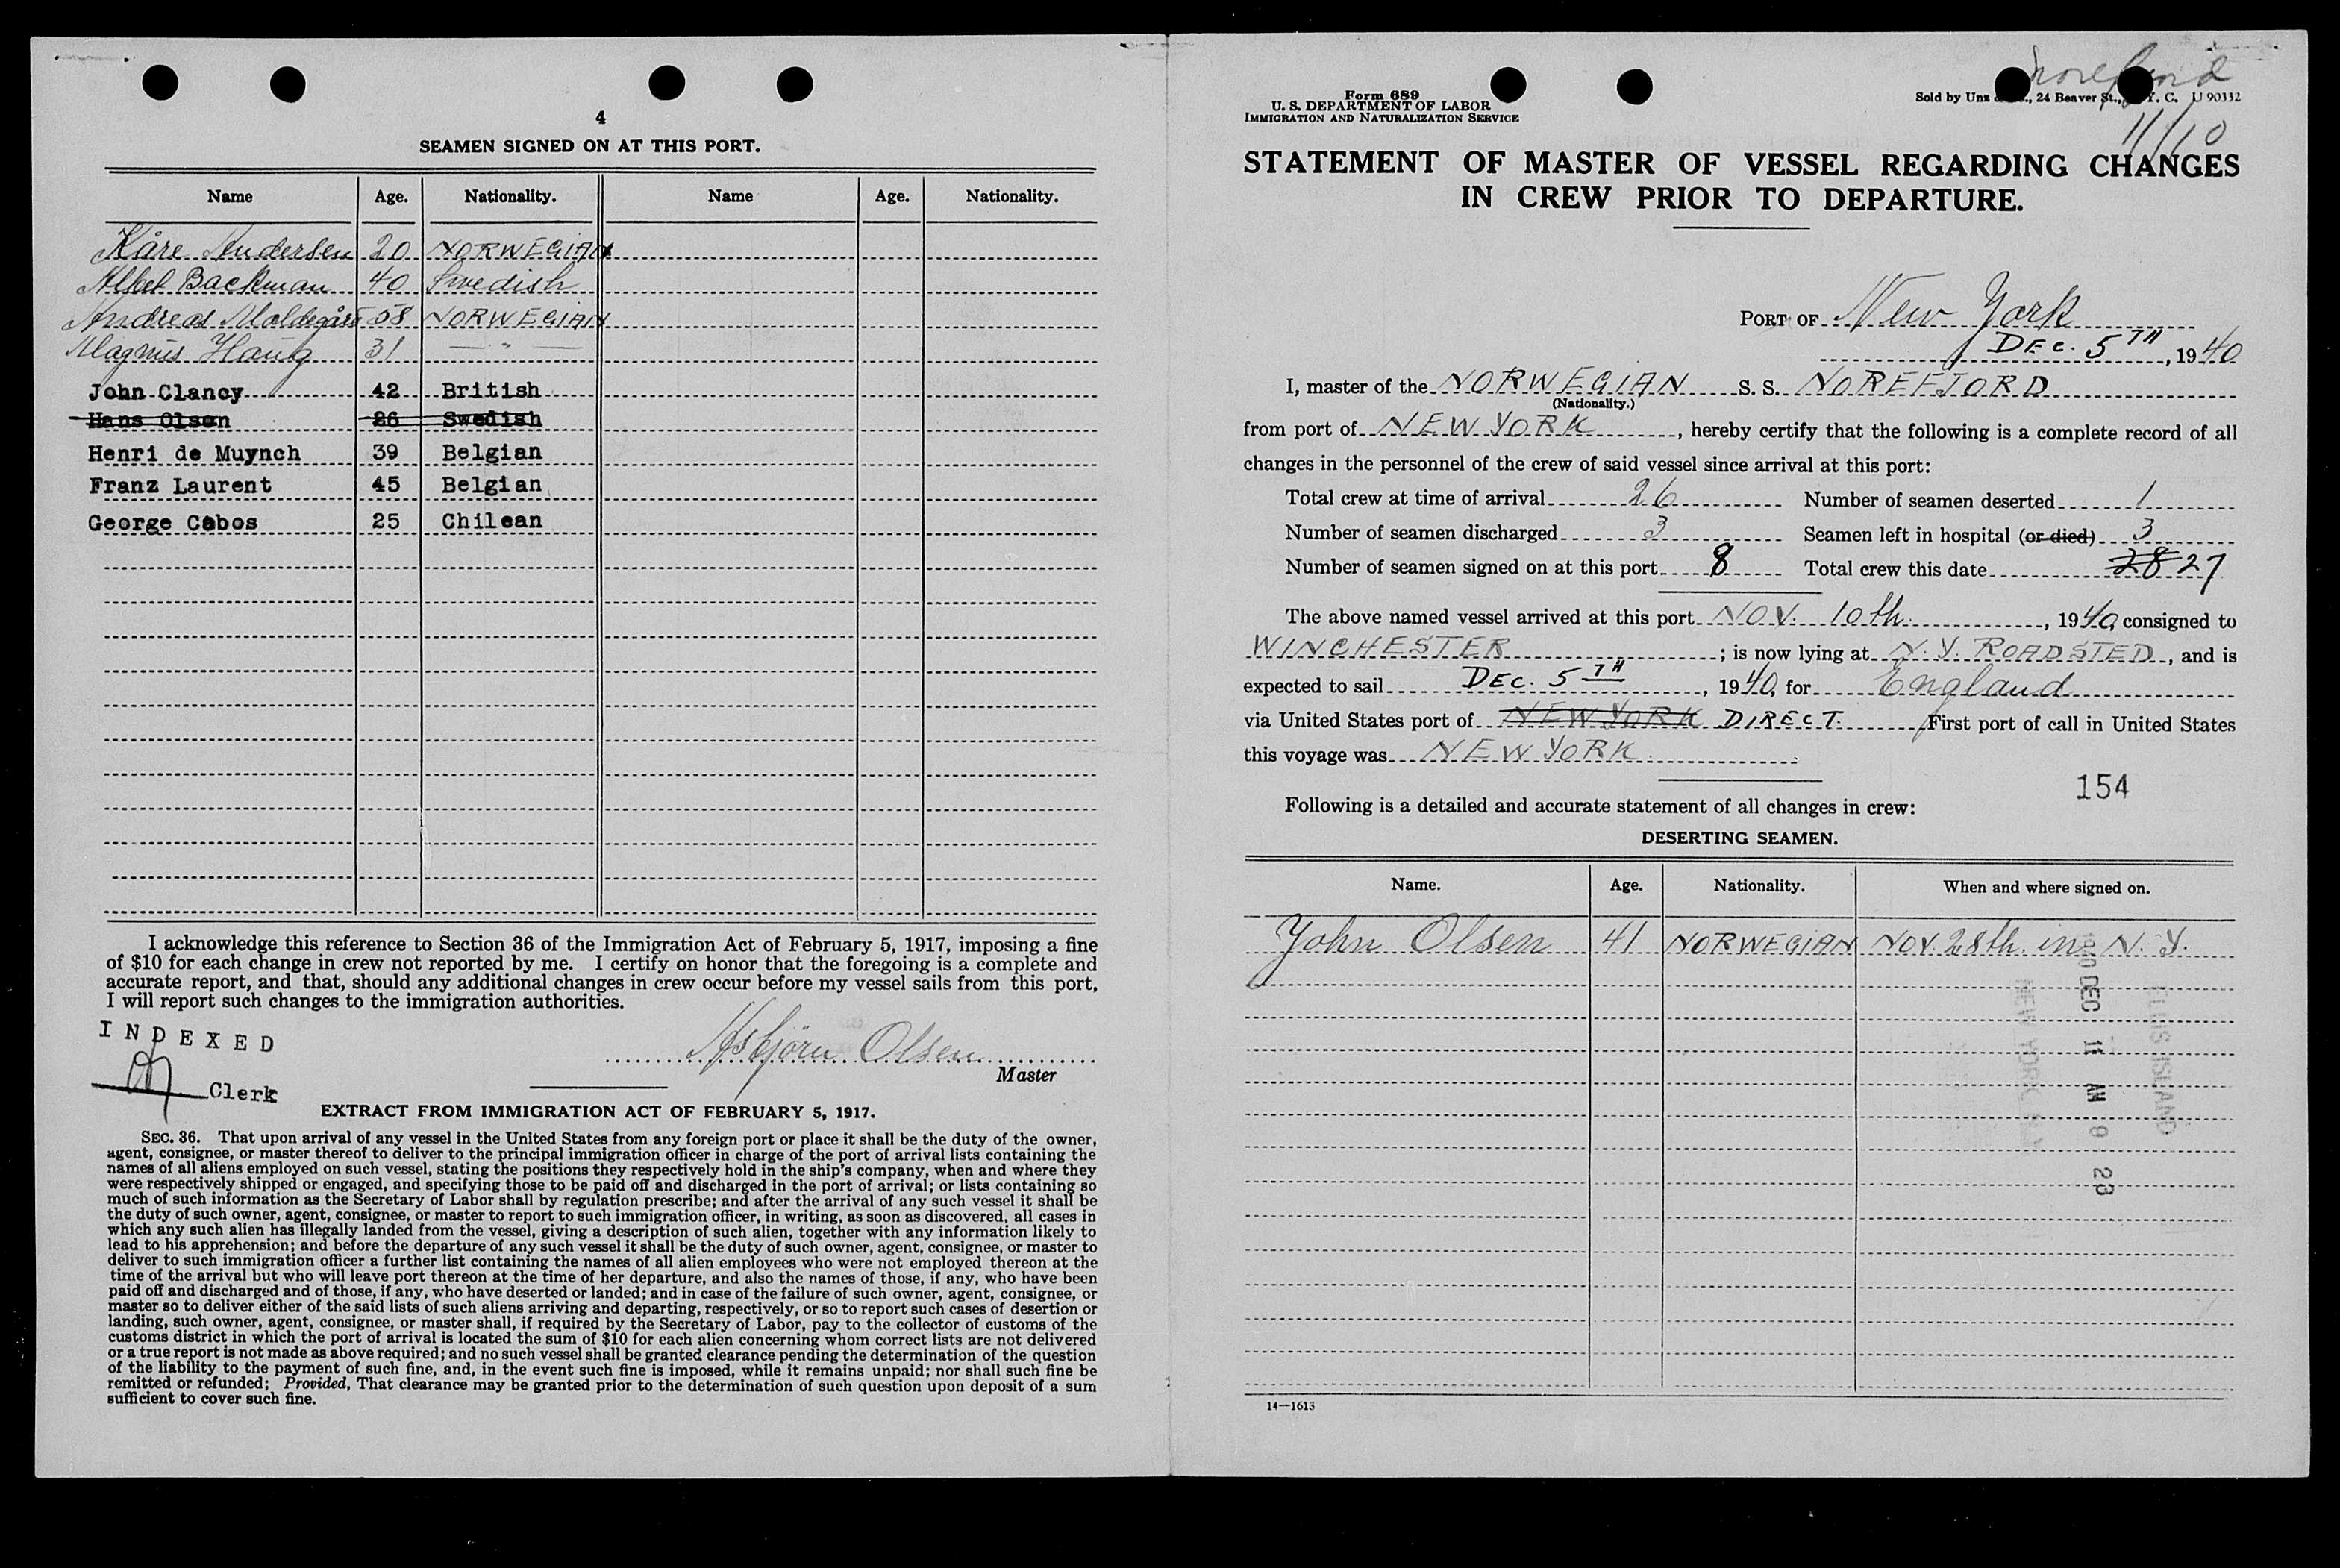 4
SEAMEN SIGNED ON AT THIS PORT.
Name Age. Nationality. Name Age. Nationality.
Kåre Andersen 20 NORWEGIAN
Albel Backman 40 Swedish
Andreas 58 NORWEGIAN
Magnus Haug 31 — " —
John Clancy 42 British
Hans Olsen 26 Swedish
Henri de Muynch 39 Belgian
Franz Laurent 45 Belgian
George Cobos 25 Chilean
I acknowledge this reference to Section 36 of the Immigration Act of February 5, 1917, imposing a fine
of $10 for each change in crew not reported by me. I certify on honor that the foregoing is a complete and
accurate report, and that, should any additional changes in crew occur before my vessel sails from this port,
I will report such changes to the immigration authorities.
INDEXED
Asbjörn Olsen
Master
Clerk
EXTRACT FROM IMMIGRATION ACT OF FEBRUARY 5, 1917.
SEC. 36. That upon arrival of any vessel in the United States from any foreign port or place it shall be the duty of the owner,
agent, consignee, or master thereof to deliver to the principal immigration officer in charge of the port of arrival lists containing the
names of all aliens employed on such vessel, stating the positions they respectively hold in the ship's company, when and where they
were respectively shipped or engaged, and specifying those to be paid off and discharged in the port of arrival; or lists containing so
much of such information as the Secretary of Labor shall by regulation prescribe; and after the arrival of any such vessel it shall be
the duty of such owner, agent, consignee, or master to report to such immigration officer, in writing, as soon as discovered, all cases in
which any such alien has illegally landed from the vessel, giving a description of such alien, together with any information likely to
lead to his apprehension; and before the departure of any such vessel it shall be the duty of such owner, agent, consignee, or master to
deliver to such immigration officer a further list containing the names of all alien employees who were not employed thereon at the
time of the arrival but who will leave port thereon at the time of her departure, and also the names of those, if any, who have been
paid off and discharged and of those, if any, who have deserted or landed; and in case of the failure of such owner, agent, consignee, or
master so to deliver either of the said lists of such aliens arriving and departing, respectively, or so to report such cases of desertion or
landing, such owner, agent, consignee, or master shall, if required by the Secretary of Labor, pay to the collector of customs of the
customs district in which the port of arrival is located the sum of $10 for each alien concerning whom correct lists are not delivered
or a true report is not made as above required; and no such vessel shall be granted clearance pending the determination of the question
of the liability to the payment of such fine, and, in the event such fine is imposed, while it remains unpaid; nor shall such fine be
remitted or refunded; Provided, That clearance may be granted prior to the determination of such question upon deposit of a sum
sufficient to cover such fine.
Norefjord
Form 689
U. S. DEPARTMENT OF LABOR
IMMIGRATION AND NATURALIZATION SERVICE
Sold by Unz 24 Beaver St., Y. C. U 90332
11/10
STATEMENT OF MASTER OF VESSEL REGARDING CHANGES
IN CREW PRIOR TO DEPARTURE.
PORT OF New York
DEC. 5TH, 1940
I, master of the NORWEGIAN S. S. NOREFJORD
(Nationality.)
from port of NEW YORK, hereby certify that the following is a complete record of all
changes in the personnel of the crew of said vessel since arrival at this port:
Total crew at time of arrival 26 Number of seamen deserted 1
Number of seamen discharged 3 Seamen left in hospital (or died) 3
Number of seamen signed on at this port 8 Total crew this date 28 27
The above named vessel arrived at this port NOV. 10th, 1940, consigned to
WINCHESTER; is now lying at N. Y. ROADSTED, and is
expected to sail DEC. 5TH, 1940, for England
via United States port of NEW YORK DIRECT. First port of call in United States
this voyage was NEW YORK.
154
Following is a detailed and accurate statement of all changes in crew:
DESERTING SEAMEN.
Name. Age. Nationality. When and where signed on.
John Olsen 41 NORWEGIAN NOV. 28th. in N. Y.
1940 DEC 11 AM 9 28
ELLIS ISLAND
NEW YORK, N.Y.
14—1613